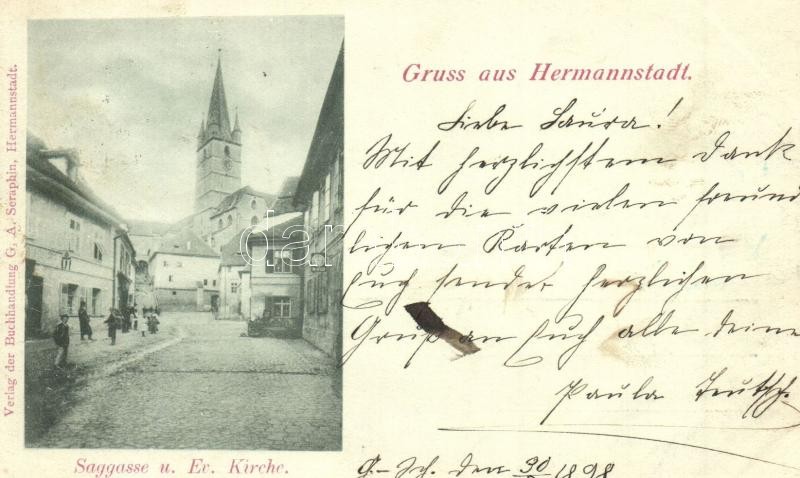 Gruss aus Hermannstadt.
Liebe Laura!
Mit herzlichstem Dank
für die vielen freund
lichen Karten von
Euch sendet herzlichen
Gruß an Euch alle deine
Paula Teutsch.
G-Sch. den 30/ 1898
Verlag der Buchhandlung G. A. Seraphin, Hermannstadt.
Saggasse u. Ev. Kirche.